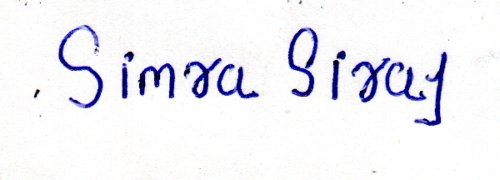 Simra Siraj